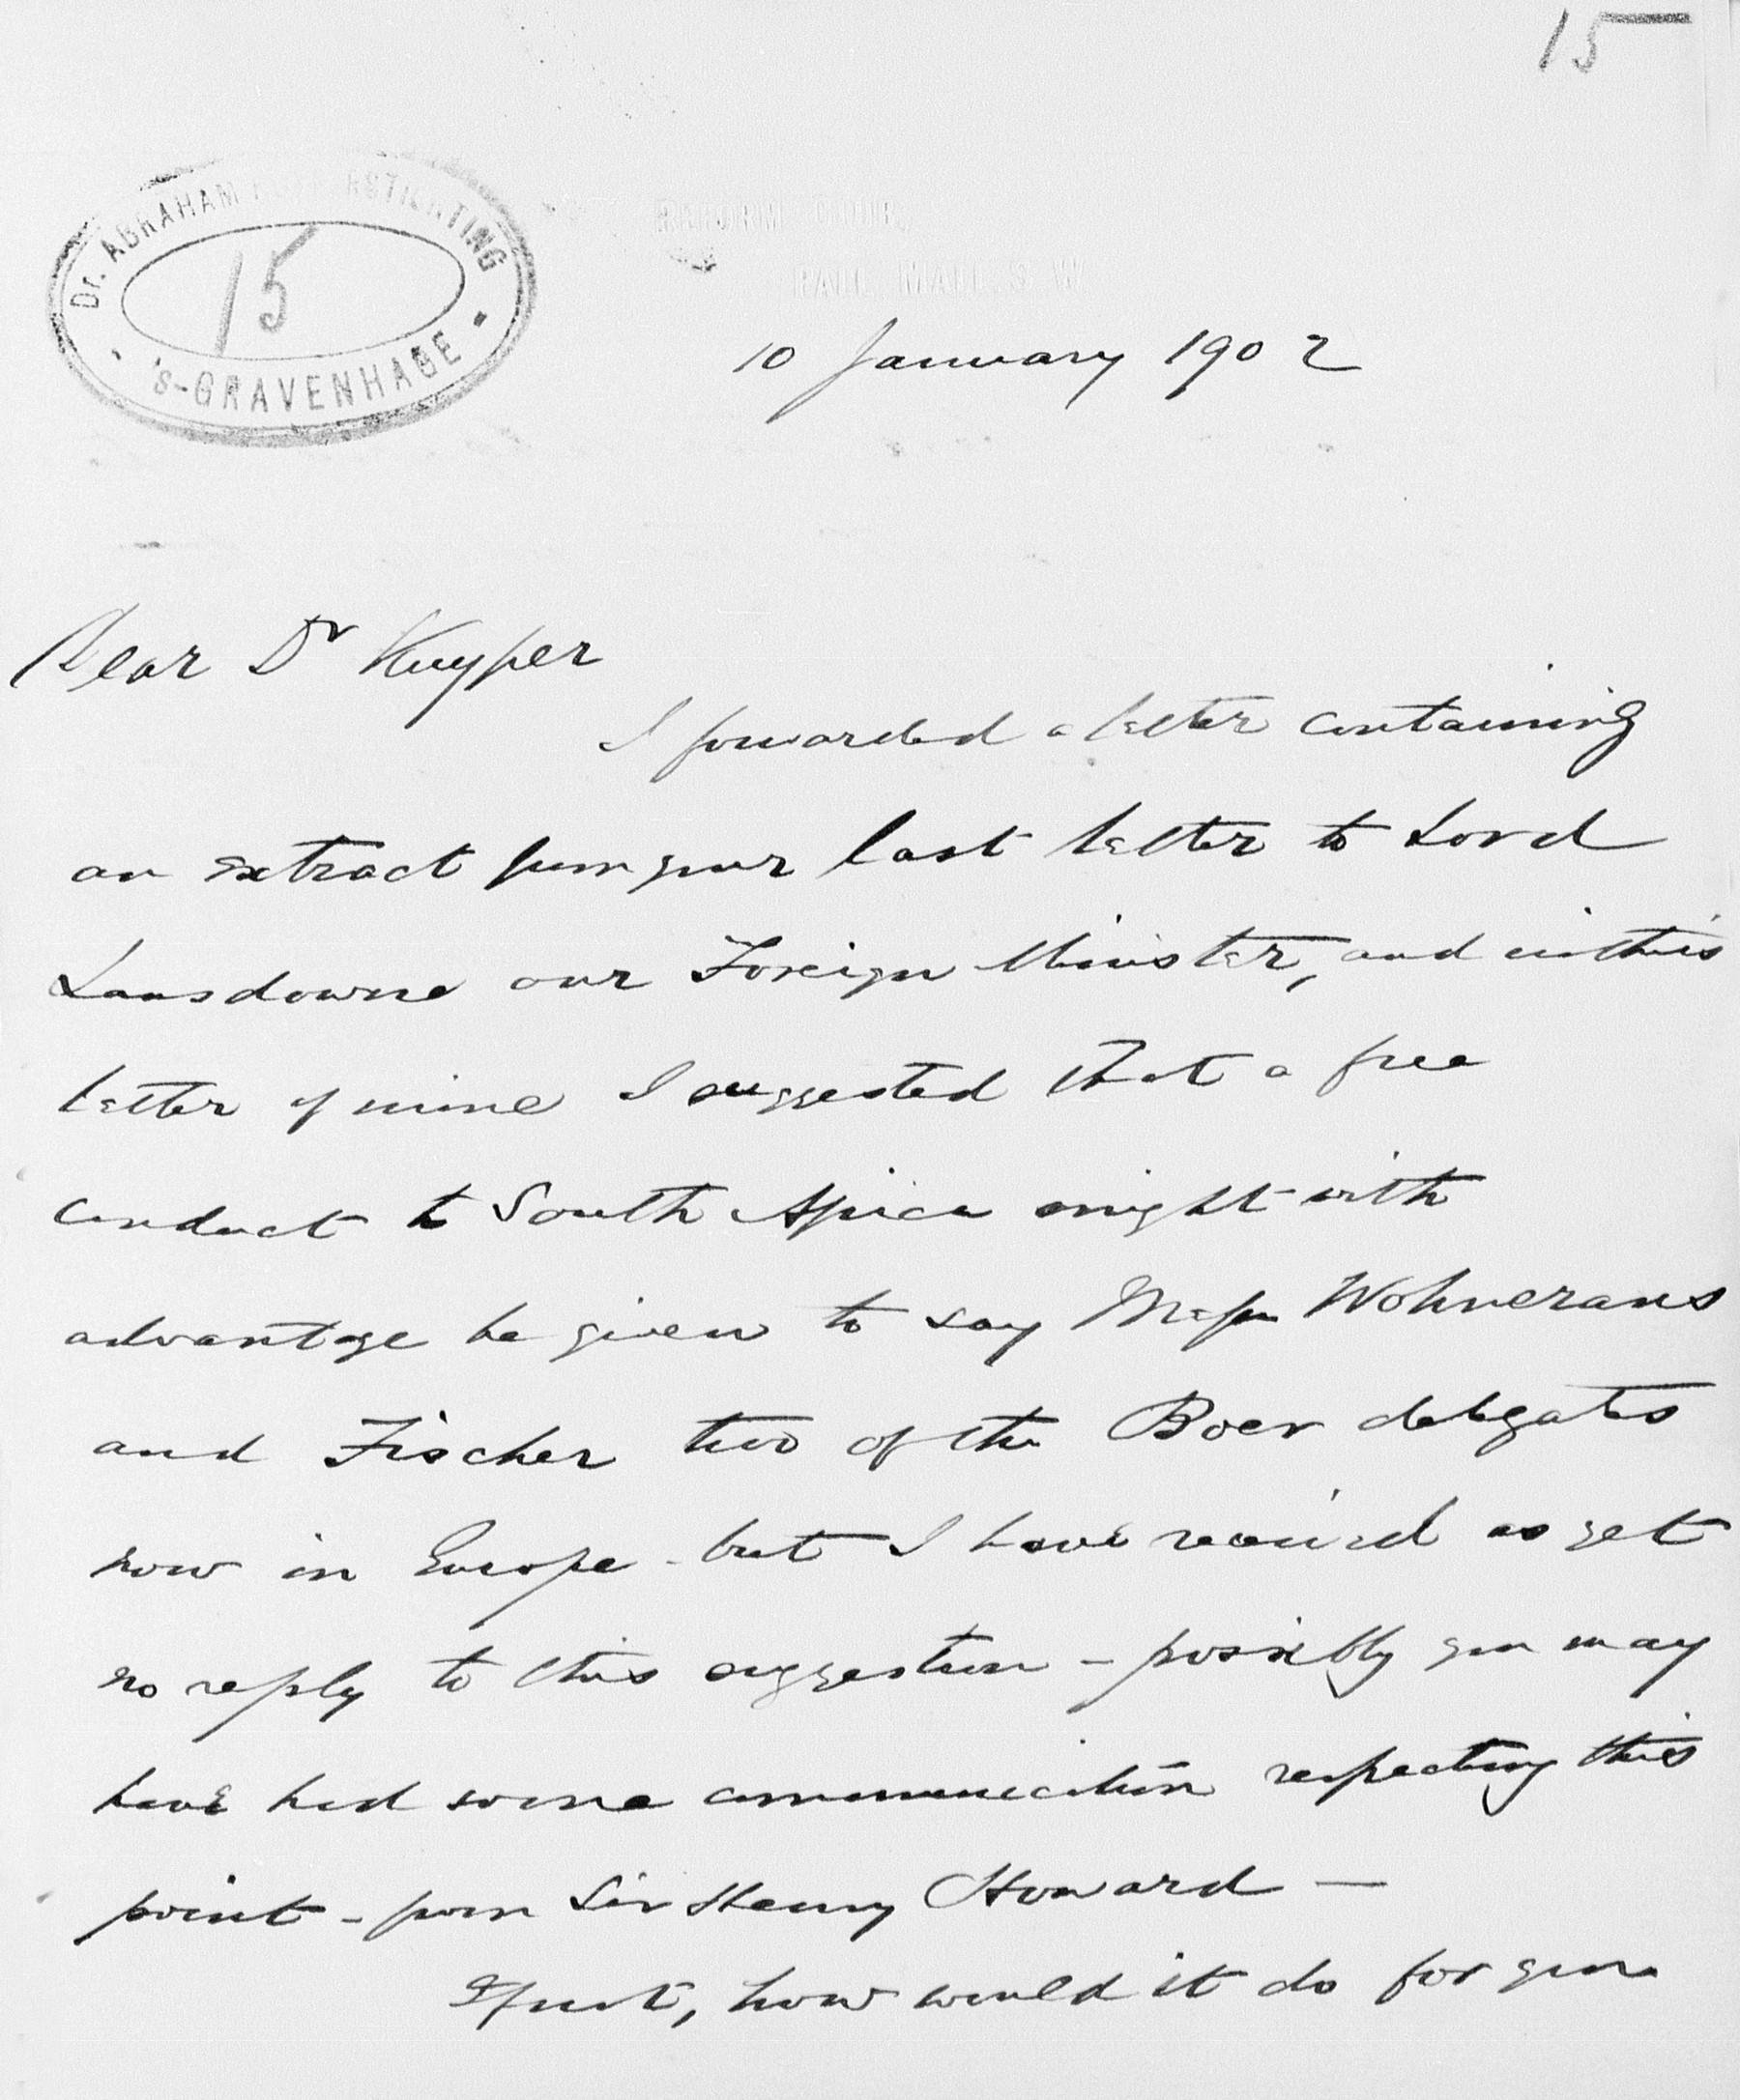 15
Dr. ABRAHAM KUYPERSTICHTING
15
's-GRAVENHAGE
REFORM CLUB,
PALL MALL. S. W.
10 January 1902
Dear Dr Kuyper
I forwarded a letter containing
an extract from your last letter to Lord
Lansdowne our Foreign Minister, and in this
letter of mine I suggested that a free
conduct to South Africa might with
advantage be given to say Wolmerans
and Fischer two of the Boer delegates
now in Europe - but I have received as yet
no reply to this suggestion - possibly you may
have had some communication respecting this
point - from Sir Henry Howard —
, how would it do for you